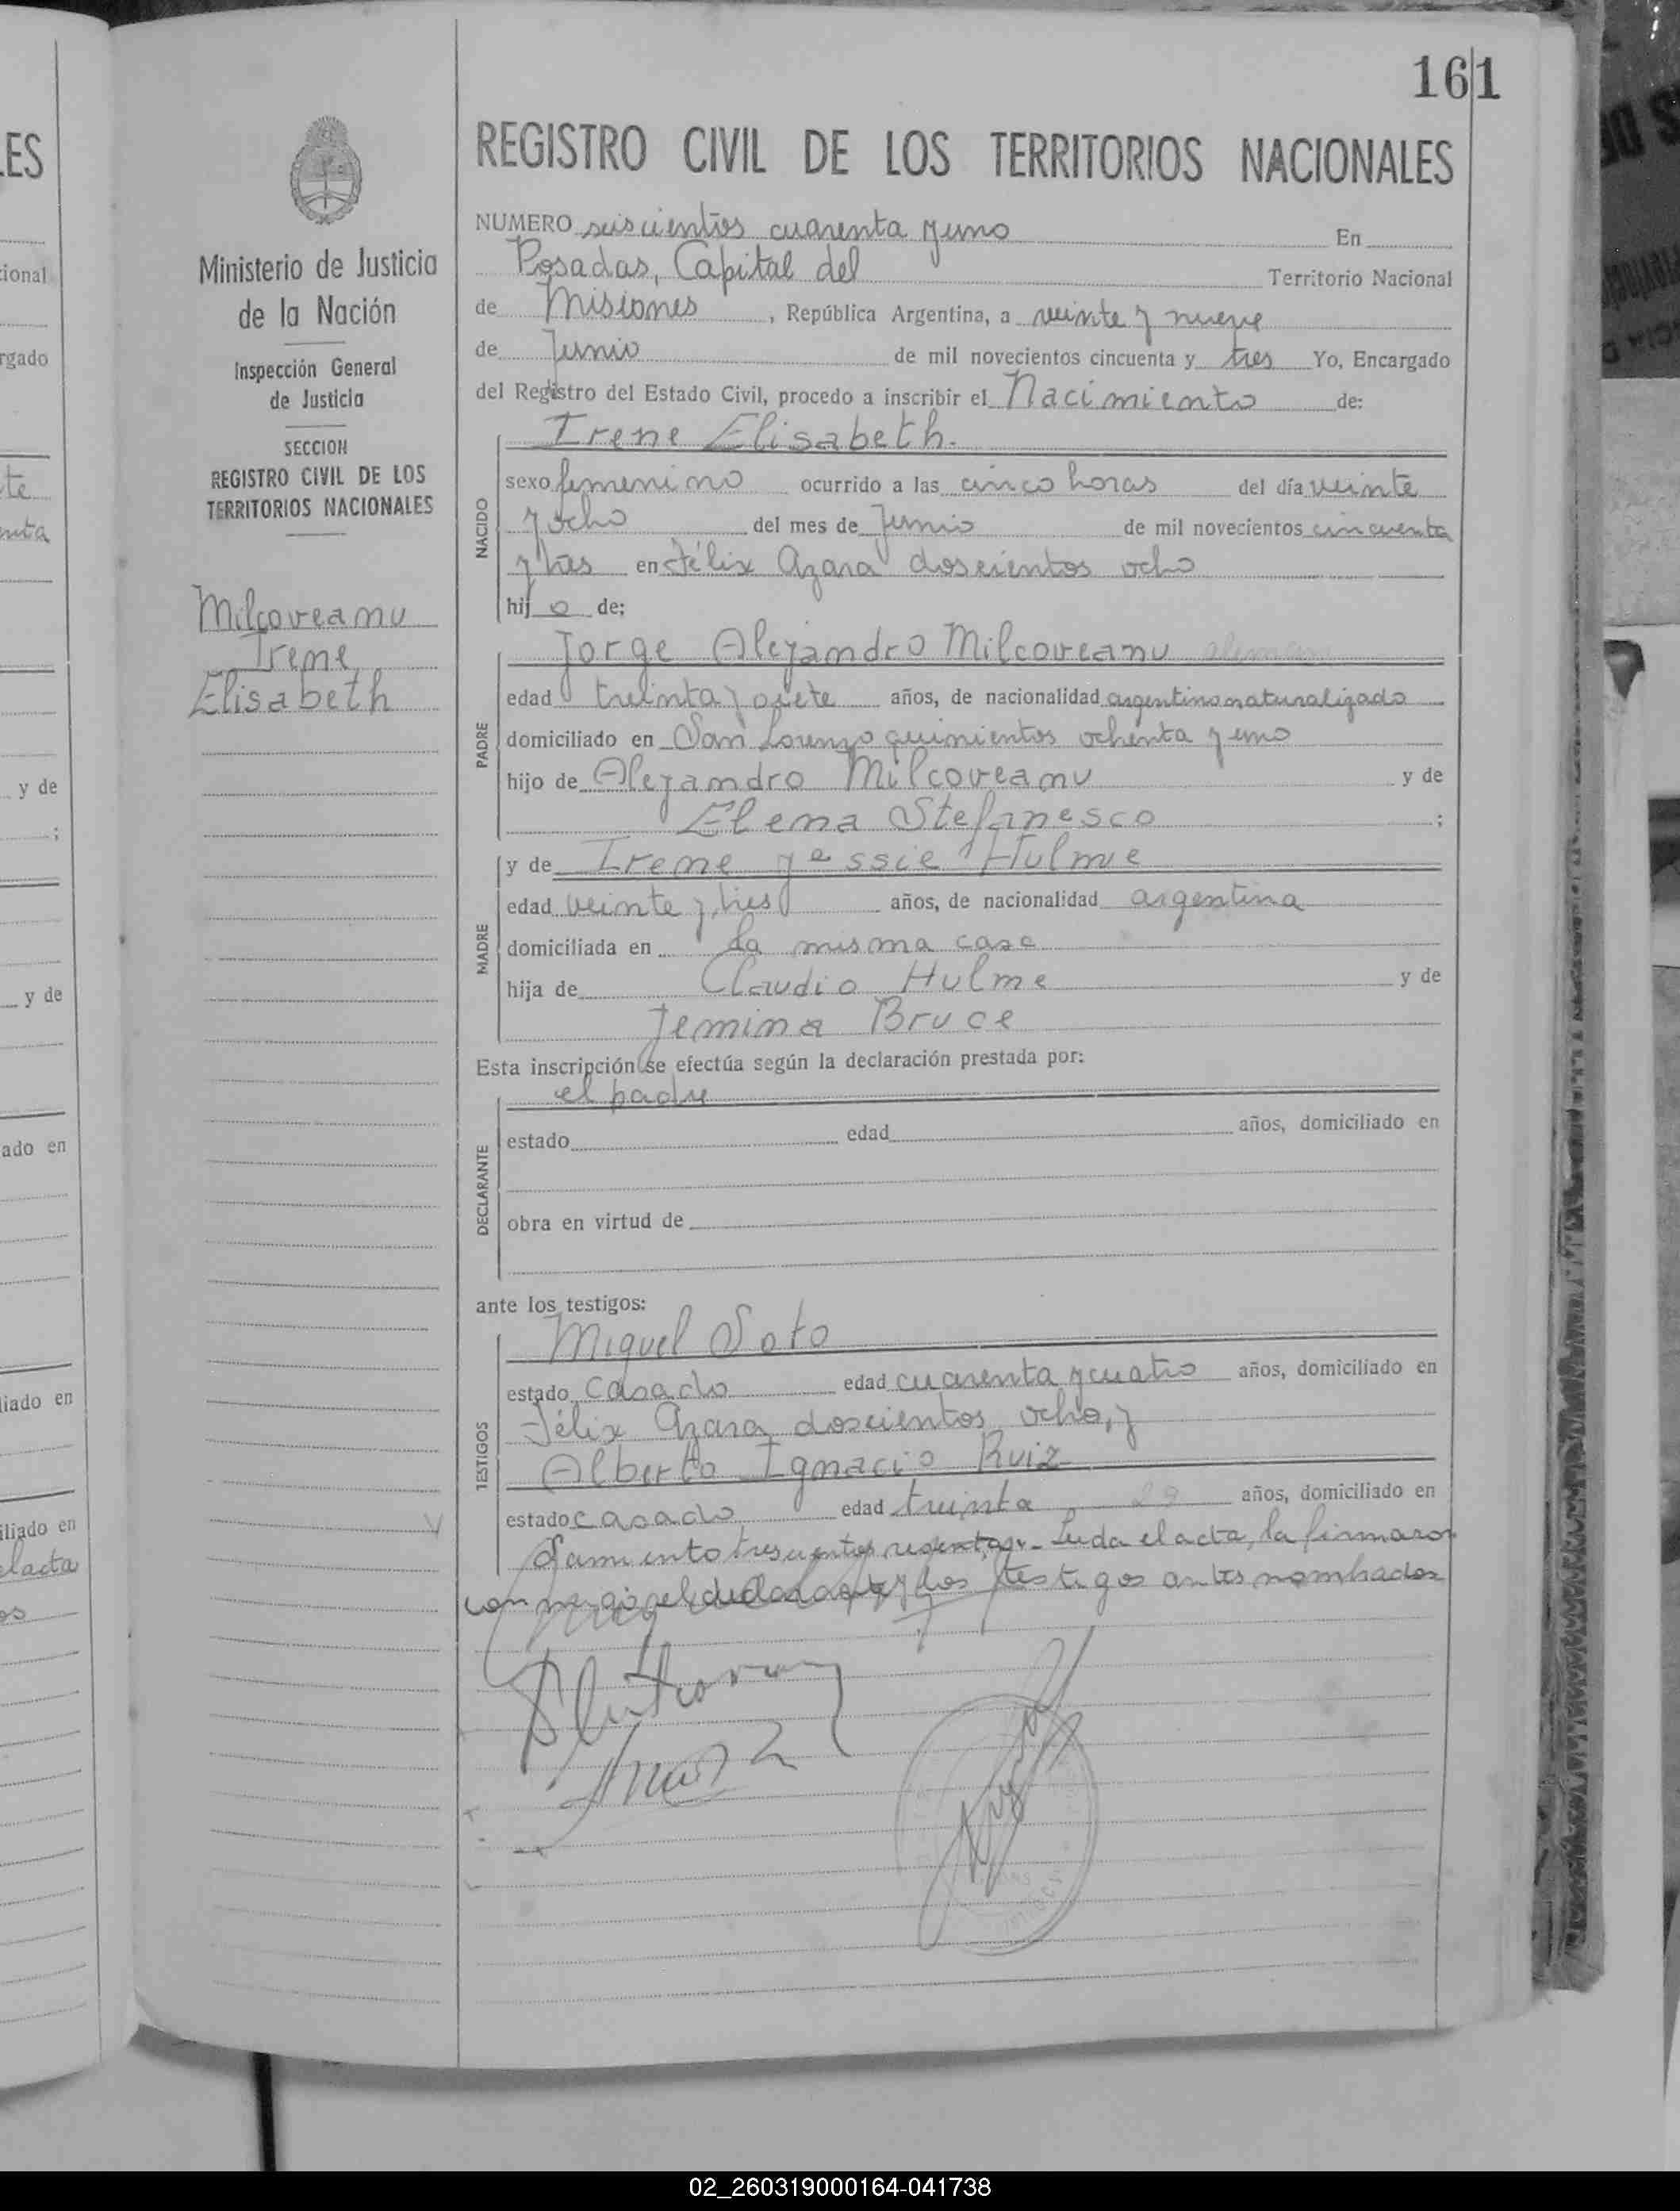 161
REGISTRO CIVIL DE LOS TERRITORIOS NACIONALES
Ministerio de Justicia
de la Nación
Inspección General
de Justicia
SECCION
REGISTRO CIVIL DE LOS
TERRITORIOS NACIONALES
Milcoveanu
Irene
Elisabeth
NUMERO seiscientos cuarenta y uno En
Posadas, Capital del Territorio Nacional
de Misiones, República Argentina, a veinte y nueve
de Junio de mil novecientos cincuenta y tres Yo, Encargado
del Registro del Estado Civil, procedo a inscribir el Nacimiento de:
NACIDO
Irene Elisabeth.
sexo femenino ocurrido a las cinco horas del día veinte
y ocho del mes de Junio de mil novecientos cincuenta
y tres en Félix Azara doscientos ocho
hij a de:
PADRE
Jorge Alejandro Milcoveanu
edad treinta y siete años, de nacionalidad argentino naturalizado
domiciliado en San Lorenzo quinientos ochenta y uno
hijo de Alejandro Milcoveanu y de
Elena Stefanesco ;
MADRE
y de Irene Jessie Hulme
edad veinte y tres años, de nacionalidad argentina
domiciliada en la misma casa
hija de Claudio Hulme y de
Jemina Bruce
Esta inscripción se efectúa según la declaración prestada por:
DECLARANTE
el padre
estado edad años, domiciliado en
obra en virtud de
ante los testigos:
TESTIGOS
Miguel Soto
estado casado edad cuarenta y cuatro años, domiciliado en
Félix Azara doscientos ocho, y
Alberto Ignacio Ruiz
estado casado edad treinta años, domiciliado en
Sarmiento trescientos Leida el acta, la firmaron
conmigo el declarante y los testigos antes nombrados
ES
cional
rgado
te
enta
y de
;
y de
ado en
liado en
iliado en
el acta
os
02_260319000164-041738